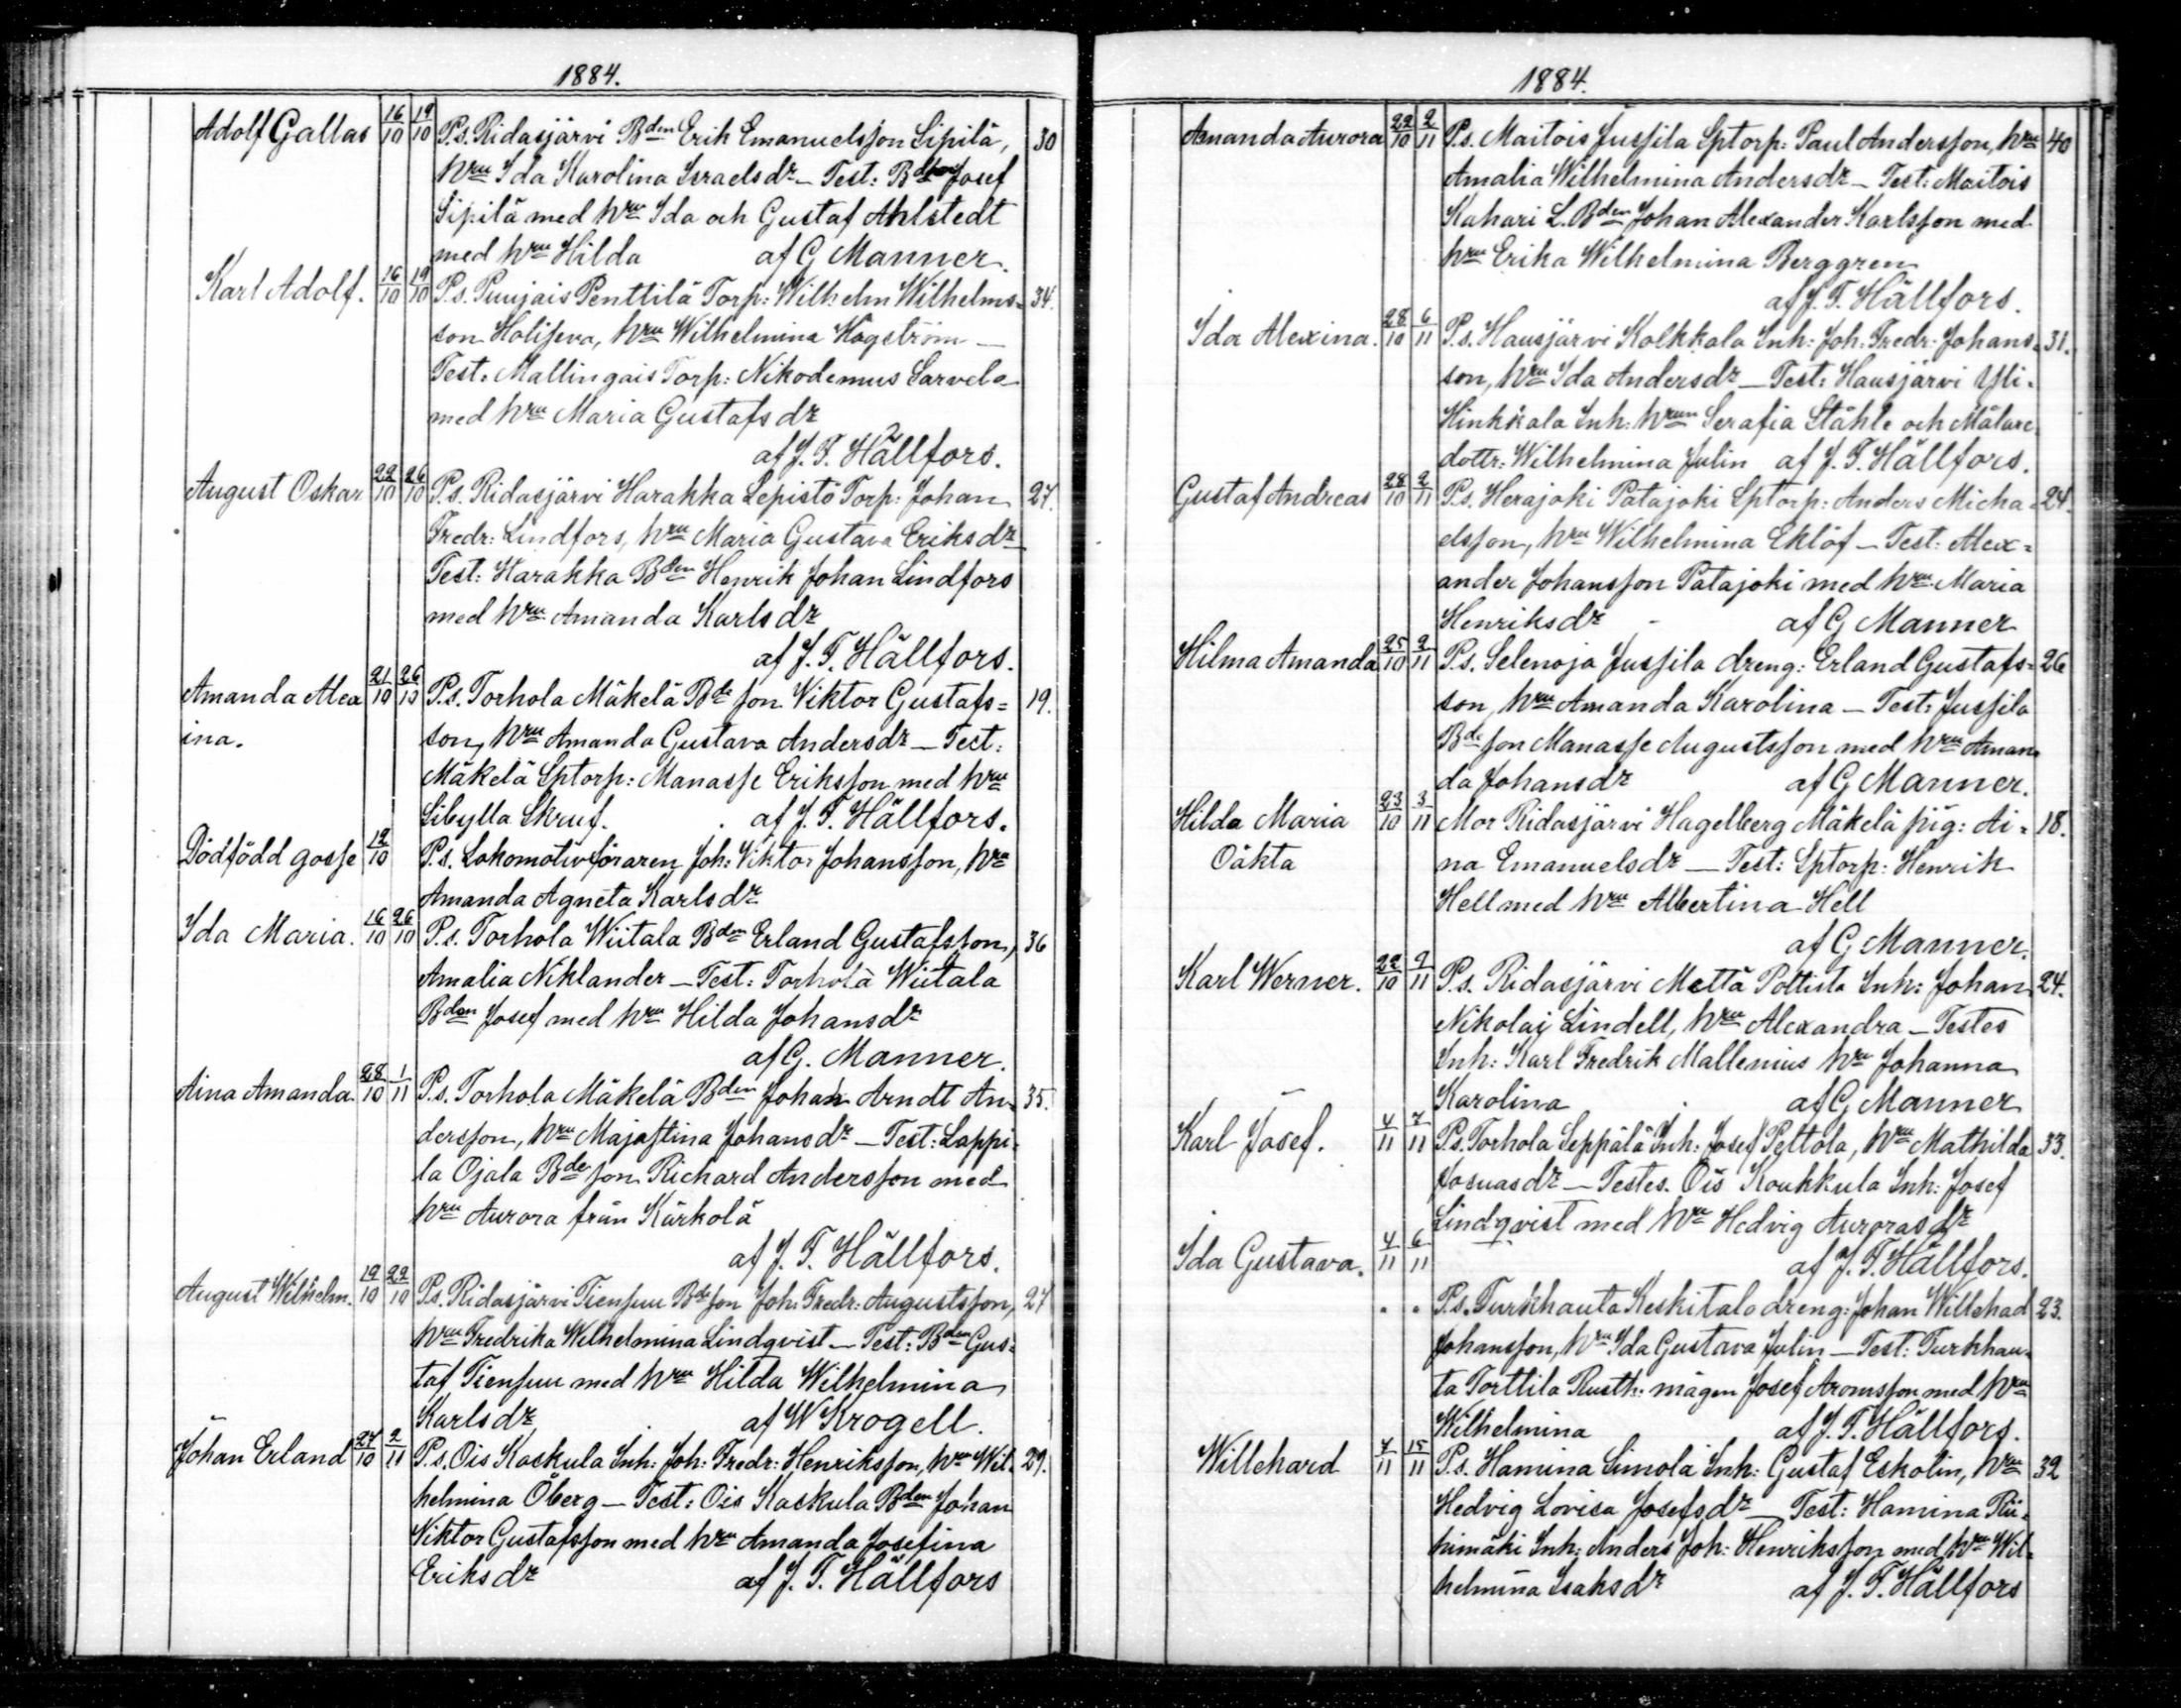 1884.
Adolf Gallas 16/10 19/10 P.s. Ridasjärvi Bden Erik Emanuelsson Sipilä, 30
hru Ida Karolina Israelsdr – Test: Bden Josef
Sipilä med hru Ida och Gustaf Ahlstedt
med hru Hilda af G Manner.
Karl Adolf. 16/10 19/10 P.s. Puujais Penttilä Torp: Wilhelm Wilhelms= 34.
son, hru Wilhelmina Högström –
Test: Mallingais Torp: Nikodemus Sarvela
med hru Maria Gustafsdr
af J. F. Hällfors.
August Oskar 22/10 26/10 P.s. Ridasjärvi Harakka Lepistö Torp: Johan 27.
Fredr: Lindfors, hru Maria Gustava Eriksdr
Test: Harakka Bden Henrik Johan Lindfors
med hru Amanda Karlsdr
af J. F. Hällfors.
Amanda Alex 21/10 26/10 P.s. Torhola Mäkelä Bde son Viktor Gustafs= 19.
ina. son, hru Amanda Gustava Andersdr – Test:
Mäkelä Sptorp: Manasse Eriksson med hru
Sibylla Skruf. af J. F. Hällfors.
Dödfödd gosse 12/10 P.s. Lokomotivföraren Joh: Viktor Johansson, hru
Amanda Agneta Karlsdr
Ida Maria. 16/10 26/10 P.s. Torhola Wiitala Bden Erland Gustafsson, 36
Amalia Niklander – Test: Torhola Wiitala
Bden Josef med hru Hilda Johansdr
af G. Manner.
Aina Amanda 28/10 1/11 P.s. Torhola Mäkelä Bden Johan Arndt An= 35.
dersson, hru Majastina Johansdr – Test: Lappi=
la Ojala Bde son Richard Andersson med
hru Aurora från Kärkolä
af J. F. Hällfors.
August Wilhelm. 19/10 22/10 P.s. Ridasjärvi Tiensuu Bde son Joh: Fredr: Augustsson, 27
hru Fredrika Wilhelmina Lindqvist – Test: Bden Gus=
taf Tiensuu med hru Hilda Wilhelmina
Karlsdr af W Krogell.
Johan Erland 27/10 2/11 P.s. Ois Kaskula Inh: Joh: Fredr: Henriksson, hru Wil= 29.
helmina Öberg – Test: Ois Kaskula Bden Johan
Viktor Gustafsson med hru Amanda Josefina
Eriksdr af J. F. Hällfors
1884.
Amanda Aurora 22/10 2/11 P.s. Maitois Jussila Sptorp: Paul Andersson, hru 40
Amalia Wilhelmina Andersdr – Test: Maitois
Kahari L. Bden Johan Alexander Karlsson med
hru Erika Wilhelmina Berggren
af J. F. Hällfors.
Ida Alexina. 28/10 6/11 P.s. Hausjärvi Kolkkala Inh: Joh: Fredr: Johans= 31.
son, hru Ida Andersdr – Test: Hausjärvi Yli=
Hinkkala Inh: hrun Serafia Ståhle och Målare
dottr: Wilhelmina Julin af J. F. Hällfors.
Gustaf Andreas 28/10 2/11 P.s. Herajoki Patajoki Sptorp: Anders Micha= 24.
elsson, hru Wilhelmina Eklöf – Test: Alex=
ander Johansson Patajoki med hru Maria
Henriksdr – af G Manner
Hilma Amanda 25/10 2/11 P.s. Selenoja Jussila dreng: Erland Gustafs= 26
son, hru Amanda Karolina – Test: Jussila
Bde son Manasse Augustsson med hru Aman=
da Johansdr af G Manner.
Hilda Maria 23/10 3/11 Mor Ridasjärvi Hagelberg Mäkelä pig: Ai= 18.
Oäkta na Emanuelsdr – Test: Sptorp: Henrik
Hell med hru Albertina Hell
af G Manner.
Karl Werner. 22/10 2/11 P.s. Ridasjärvi Mettä Pottista Inh: Johan 24.
Nikolai Lindell, hru Alexandra – Testes
Inh: Karl Fredrik Mallenius hru Johanna
Karolina af G Manner
Karl Josef. 4/11 7/11 P.s. Torhola Seppälä Inh: Josef Peltola, hru Mathilda 33.
Josuasdr – Testes. Ois Koukkula Inh: Josef
Lindqvist med hru Hedvig Aurorasdr
Ida Gustava. 4/11 6/11 af J. F. Hällfors.
P.s. Turkhauta Keskitalo dreng: Johan Willehad 23.
Johansson, hru Ida Gustava Julin – Test: Turkhau=
ta Torttila Rusth: mågen Josef Aromsson med hru
Wilhelmina af J. F. Hällfors.
Willehard 7/11 15/11 P.s. Hamina Simola Inh: Gustaf Eskolin, hru 32
Hedvig Lovisa Josefsdr – Test: Hamina Rii=
himäki Inh: Anders Joh: Henriksson med hru Wil=
helmina Isaksdr af J. F. Hällfors